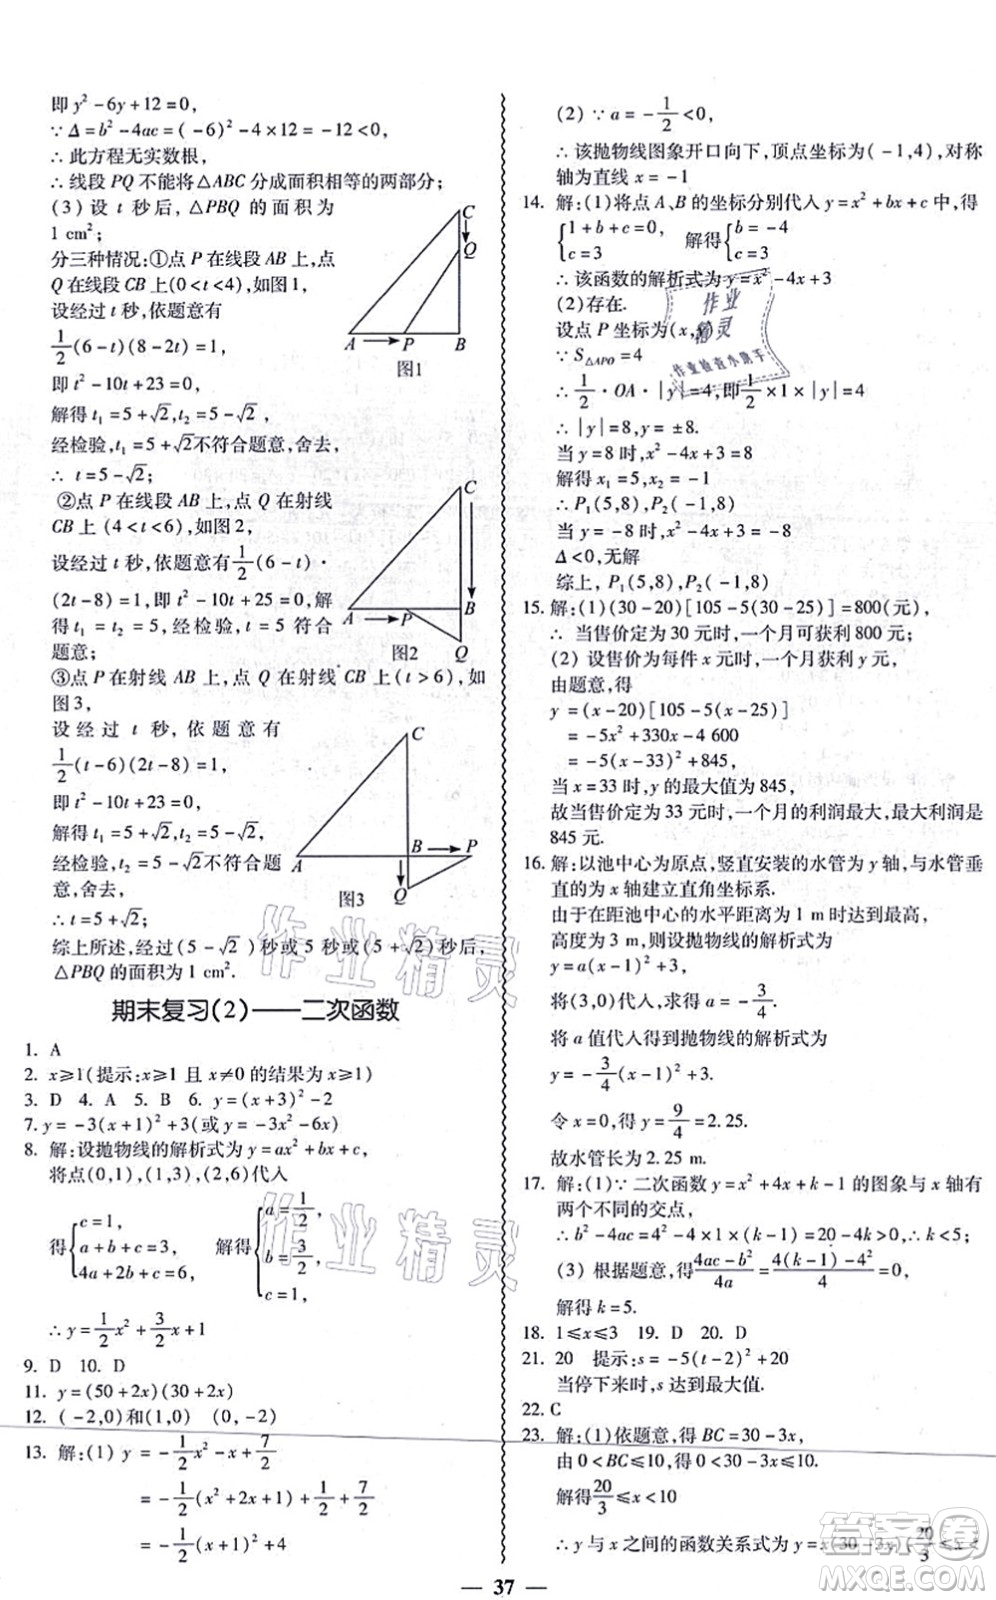 即 y²-6y+12=0,
∵Δ=b²-4ac=(-6)²-4×12=-12<0,
∴此方程无实数根,
∴线段 PQ 不能将△ABC 分成面积相等的两部分;
(3) 设 t 秒后, △PBQ 的面积为
1 cm²;
分三种情况:①点 P 在线段 AB 上,点
Q 在线段 CB 上(0<t<4),如图1,
设经过 t 秒,依题意有
1/2(6-t)(8-2t)=1,
即 t²-10t+23=0,
解得 t₁=5+√2,t₂=5-√2,
经检验,t₁=5+√2不符合题意,舍去,
∴t=5-√2;
A P B C Q
图1
②点 P 在线段 AB 上,点 Q 在射线
CB 上 (4<t<6),如图2,
设经过 t 秒,依题意有1/2(6-t)·
(2t-8)=1,即 t²-10t+25=0,解
得 t₁=t₂=5,经检验,t=5符合
题意;
C A P B Q
图2
③点 P 在射线 AB 上,点 Q 在射线 CB 上(t>6),如
图3,
设 经 过 t 秒, 依 题 意 有
1/2(t-6)(2t-8)=1,
即 t²-10t+23=0,
解得 t₁=5+√2,t₂=5-√2,
经检验,t₂=5-√2不符合题
意,舍去,
∴t=5+√2;
C A B P Q
图3
综上所述,经过(5-√2)秒或 5 秒或(5+√2)秒后,
△PBQ 的面积为1 cm².
期末复习(2)——二次函数
1. A
2. x≥1(提示:x≥1 且 x≠0 的结果为 x≥1)
3. D 4. A 5. B 6. y=(x+3)²-2
7. y=-3(x+1)²+3(或 y=-3x²-6x)
8. 解:设抛物线的解析式为 y=ax²+bx+c,
将点(0,1),(1,3),(2,6)代入
得{c=1, a+b+c=3, 4a+2b+c=6, 解得{a=1/2, b=3/2, c=1,
∴y=1/2x²+3/2x+1
9. D 10. D
11. y=(50+2x)(30+2x)
12. (-2,0)和(1,0) (0,-2)
13. 解:(1) y=-1/2x²-x+7/2
=-1/2(x²+2x+1)+1/2+7/2
=-1/2(x+1)²+4
(2) ∵a=-1/2<0,
∴该抛物线图象开口向下,顶点坐标为(-1,4),对称
轴为直线 x=-1
14. 解:(1)将点 A、B 的坐标分别代入 y=x²+bx+c 中,得
{1+b+c=0 c=3 解得{b=-4 c=3
∴该函数的解析式为 y=x²-4x+3
(2)存在.
设点 P 坐标为(x,y)
∵S△APO=4
∴1/2·OA·|y|=4,即1/2×1×|y|=4
∴|y|=8,y=±8.
当 y=8 时,x²-4x+3=8
解得 x₁=5,x₂=-1
∴P₁(5,8),P₂(-1,8)
当 y=-8 时,x²-4x+3=-8
Δ<0,无解
综上, P₁(5,8),P₂(-1,8)
15. 解:(1)(30-20)[105-5(30-25)]=800(元),
∴ 当售价定为 30 元时,一个月可获利 800 元;
(2) 设售价为每件 x 元时,一个月的获利 y 元,
由题意,得
y=(x-20)[105-5(x-25)]
=-5x²+330x-4 600
=-5(x-33)²+845,
当 x=33 时,y 的最大值为 845,
故当售价定为 33 元时,一个月的利润最大,最大利润是
845 元.
16. 解:以池中心为原点,竖直安装的水管为 y 轴,与水管垂
直的为 x 轴建立直角坐标系.
由于在距池中心的水平距离为 1 m 时达到最高,
高度为 3 m,则设抛物线的解析式为
y=a(x-1)²+3,
将(3,0)代入,求得 a=-3/4.
将 a 值代入得到抛物线的解析式为
y=-3/4(x-1)²+3.
令 x=0,得 y=9/4=2.25.
故水管长为 2.25 m.
17. 解:(1)∵二次函数 y=x²+4x+k-1 的图象与 x 轴有
两个不同的交点,
∴b²-4ac=4²-4×1×(k-1)=20-4k>0,∴k<5;
(3) 根据题意,得(4ac-b²)/4a=(4(k-1)-4²)/4=0,
解得 k=5.
18. 1≤x≤3 19. D 20. D
21. 20 提示:s=-5(t-2)²+20
当停下来时,s 达到最大值.
22. C
23. 解:(1)依题意,得 BC=30-3x,
由 0<BC≤10,得 0<30-3x≤10,
解得20/3≤x<10
∴y 与 x 之间的函数关系式为 y=x(30-3x)(20/3≤x<
37
作业精灵
作业检查小助手
作业精灵
作业精灵
答案圈
MXQE.COM